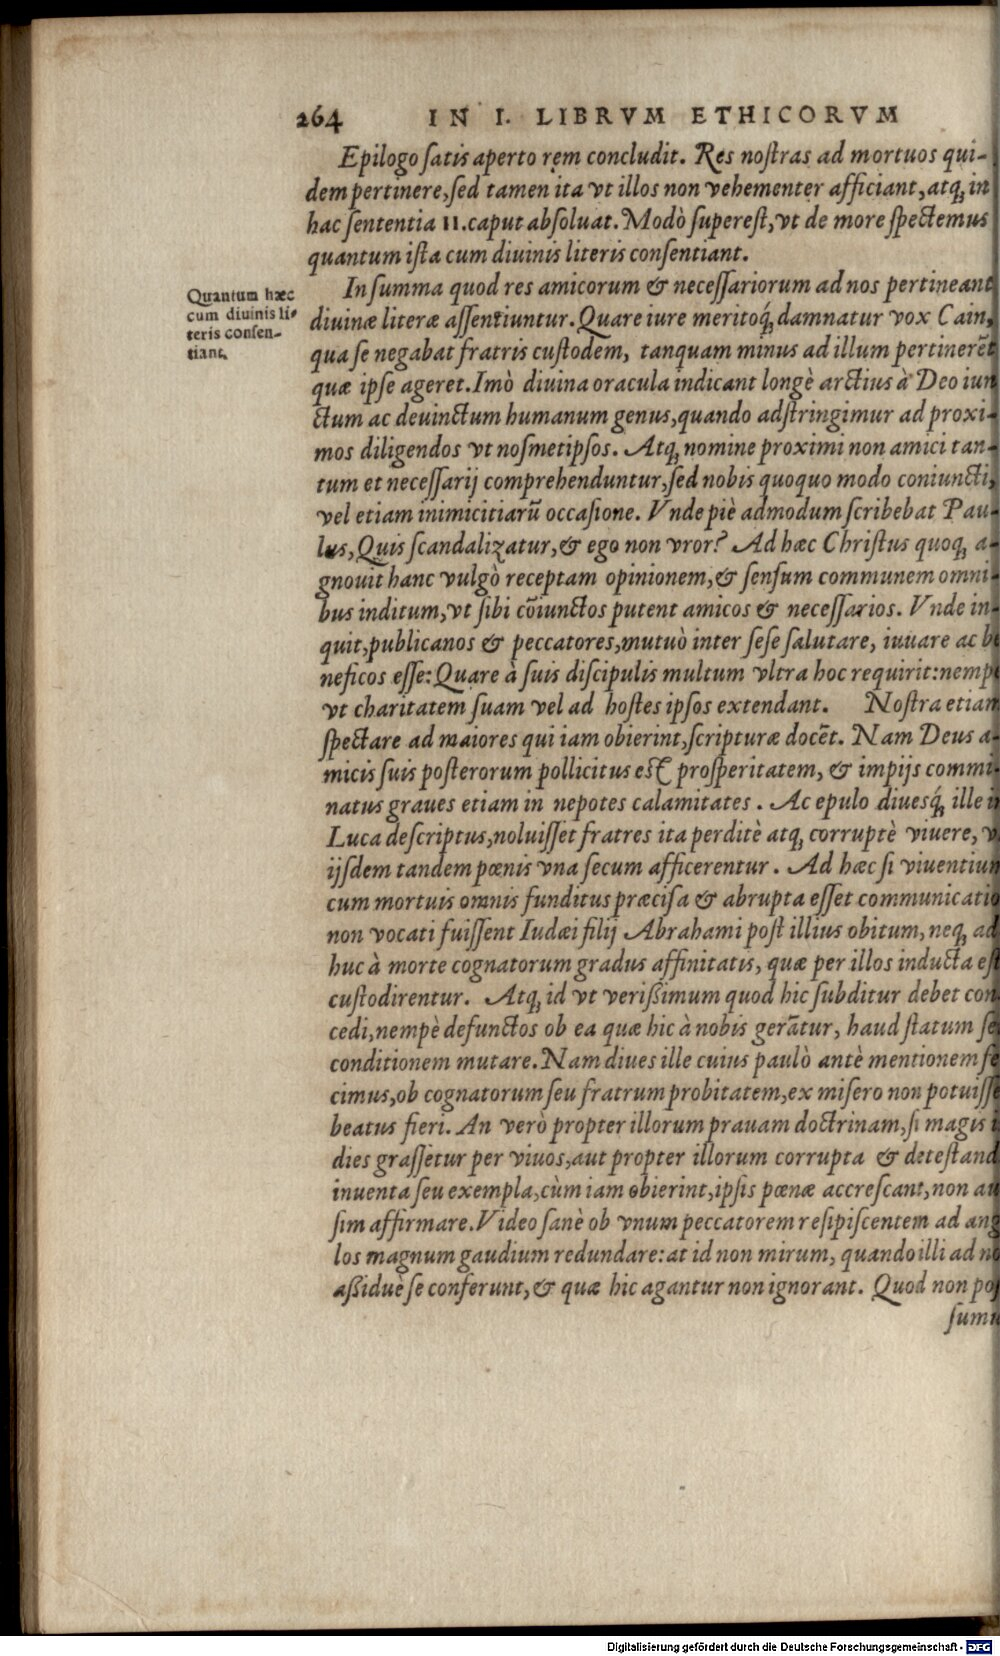 264 IN I. LIBRVM ETHICORVM
Epilogo ſatis aperto rem concludit. Res noſtras ad mortuos qui-
dem pertinere, ſed tamen ita vt illos non vehementer afficiant, atq; in
hac ſententia 11. caput abſoluat. Modò ſupereſt, vt de more ſpectemus
quantum iſta cum diuinis literis conſentiant.
Quantum hæc
cum diuinis li-
teris conſen-
tiant.
In ſumma quod res amicorum & neceſſariorum ad nos pertineant
diuinæ literæ aſſentiuntur. Quare iure meritoq́; damnatur vox Cain,
qua ſe negabat fratris cuſtodem, tanquam minus ad illum pertinerẽt
quæ ipſe ageret. Imò diuina oracula indicant longè arctius à Deo iun
ctum ac deuinctum humanum genus, quando adſtringimur ad proxi-
mos diligendos vt noſmetipſos. Atq; nomine proximi non amici tan-
tum et neceſſarij comprehenduntur, ſed nobis quoquo modo coniuncti,
vel etiam inimicitiarũ occaſione. Vnde piè admodum ſcribebat Pau-
lus, Quis ſcandalizatur, & ego non vror? Ad hæc Chriſtus quoq; a-
gnouit hanc vulgò receptam opinionem, & ſenſum communem omni-
bus inditum, vt ſibi cõiunctos putent amicos & neceſſarios. Vnde in-
quit, publicanos & peccatores, mutuò inter ſeſe ſalutare, iuuare ac be
neficos eſſe: Quare à ſuis diſcipulis multum vltra hoc requirit: nempe
vt charitatem ſuam vel ad hoſtes ipſos extendant. Noſtra etiam
ſpectare ad maiores qui iam obierint, ſcripturæ docẽt. Nam Deus a-
micis ſuis poſterorum pollicitus eſt proſperitatem, & impijs commi-
natus graues etiam in nepotes calamitates. Ac epulo diuesq́; ille in
Luca deſcriptus, noluiſſet fratres ita perditè atq; corruptè viuere, v
ijſdem tandem pœnis vna ſecum afficerentur. Ad hæc ſi viuentium
cum mortuis omnis funditus præciſa & abrupta eſſet communicatio
non vocati fuiſſent Iudæi filij Abrahami poſt illius obitum, neq; ad
huc à morte cognatorum gradus affinitatis, quæ per illos inducta eſt
cuſtodirentur. Atq; id vt verißimum quod hic ſubditur debet con
cedi, nempè defunctos ob ea quæ hic à nobis gerãtur, haud ſtatum ſeu
conditionem mutare. Nam diues ille cuius paulò antè mentionem fe
cimus, ob cognatorum ſeu fratrum probitatem, ex miſero non potuiſſe
beatus fieri. An verò propter illorum prauam doctrinam, ſi magis i
dies graſſetur per viuos, aut propter illorum corrupta & deteſtand
inuenta ſeu exempla, cùm iam obierint, ipſis pœnæ accreſcant, non au
ſim affirmare. Video ſanè ob vnum peccatorem reſipiſcentem ad ang
los magnum gaudium redundare: at id non mirum, quando illi ad no
aßiduè ſe conferunt, & quæ hic agantur non ignorant. Quod non poſ
ſumu
Digitalisierung gefördert durch die Deutsche Forschungsgemeinschaft - DFG